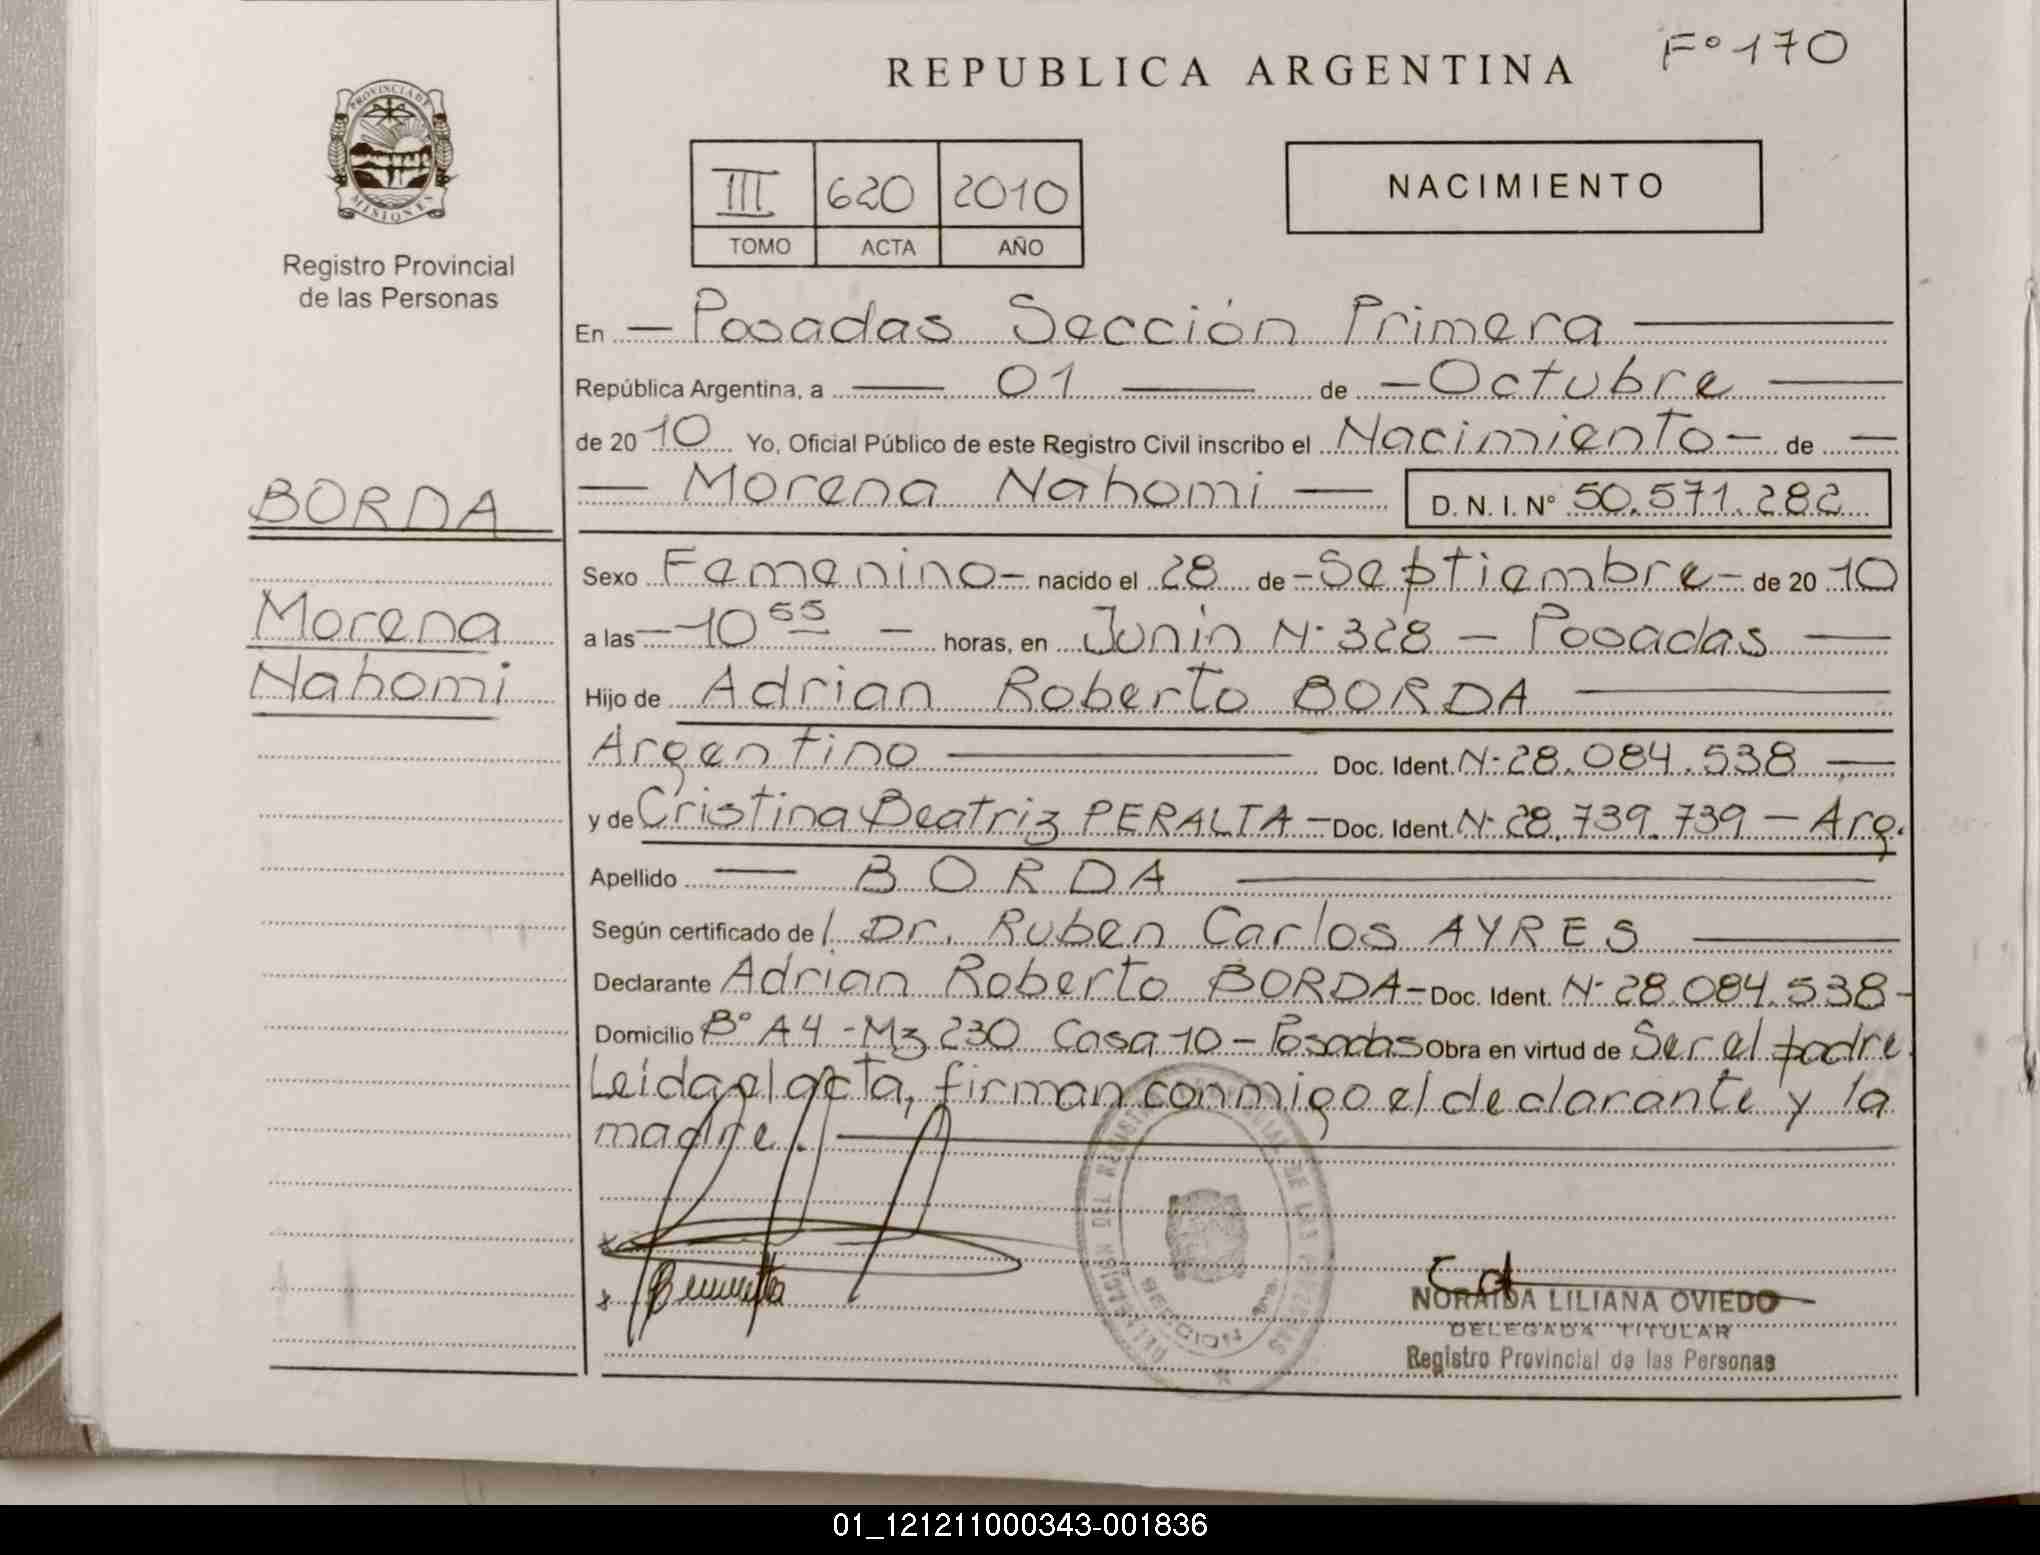 F° 170
REPUBLICA ARGENTINA
PROVINCIA DE
MISIONES
Registro Provincial
de las Personas
III 620 2010
TOMO ACTA AÑO
NACIMIENTO
BORDA
Morena
Nahomi
En — Posadas Sección Primera —
República Argentina, a — 01 — de — Octubre —
de 2010 Yo, Oficial Público de este Registro Civil inscribo el Nacimiento — de —
— Morena Nahomi — D. N. I. N° 50.571.282
Sexo Femenino — nacido el 28 de — Septiembre — de 2010
a las — 10 55 — horas, en Junín N° 328 — Posadas —
Hijo de Adrian Roberto BORDA —
Argentino — Doc. Ident. N° 28.084.538 —
y de Cristina Beatriz PERALTA — Doc. Ident. N° 28.739.739 — Arg.
Apellido — BORDA —
Según certificado de l Dr. Ruben Carlos AYRES —
Declarante Adrian Roberto BORDA — Doc. Ident. N° 28.084.538 —
Domicilio B° A4 - Mz 230 Casa 10 — Posadas Obra en virtud de Ser el padre.
Leida el acta, firman conmigo el declarante y la
madre. —
SECCION
NORAIDA LILIANA OVIEDO
DELEGADA TITULAR
Registro Provincial de las Personas
01_121211000343-001836